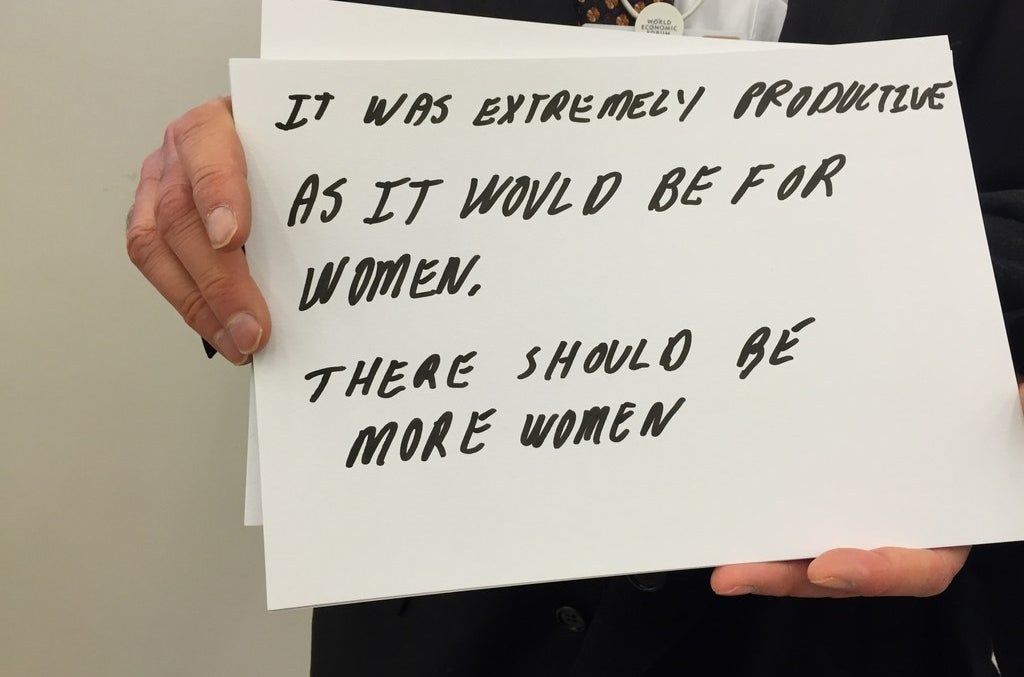 WORLD
ECONOMIC
FORUM
IT WAS EXTREMELY PRODUCTIVE
AS IT WOULD BE FOR
WOMEN.
THERE SHOULD BE
MORE WOMEN